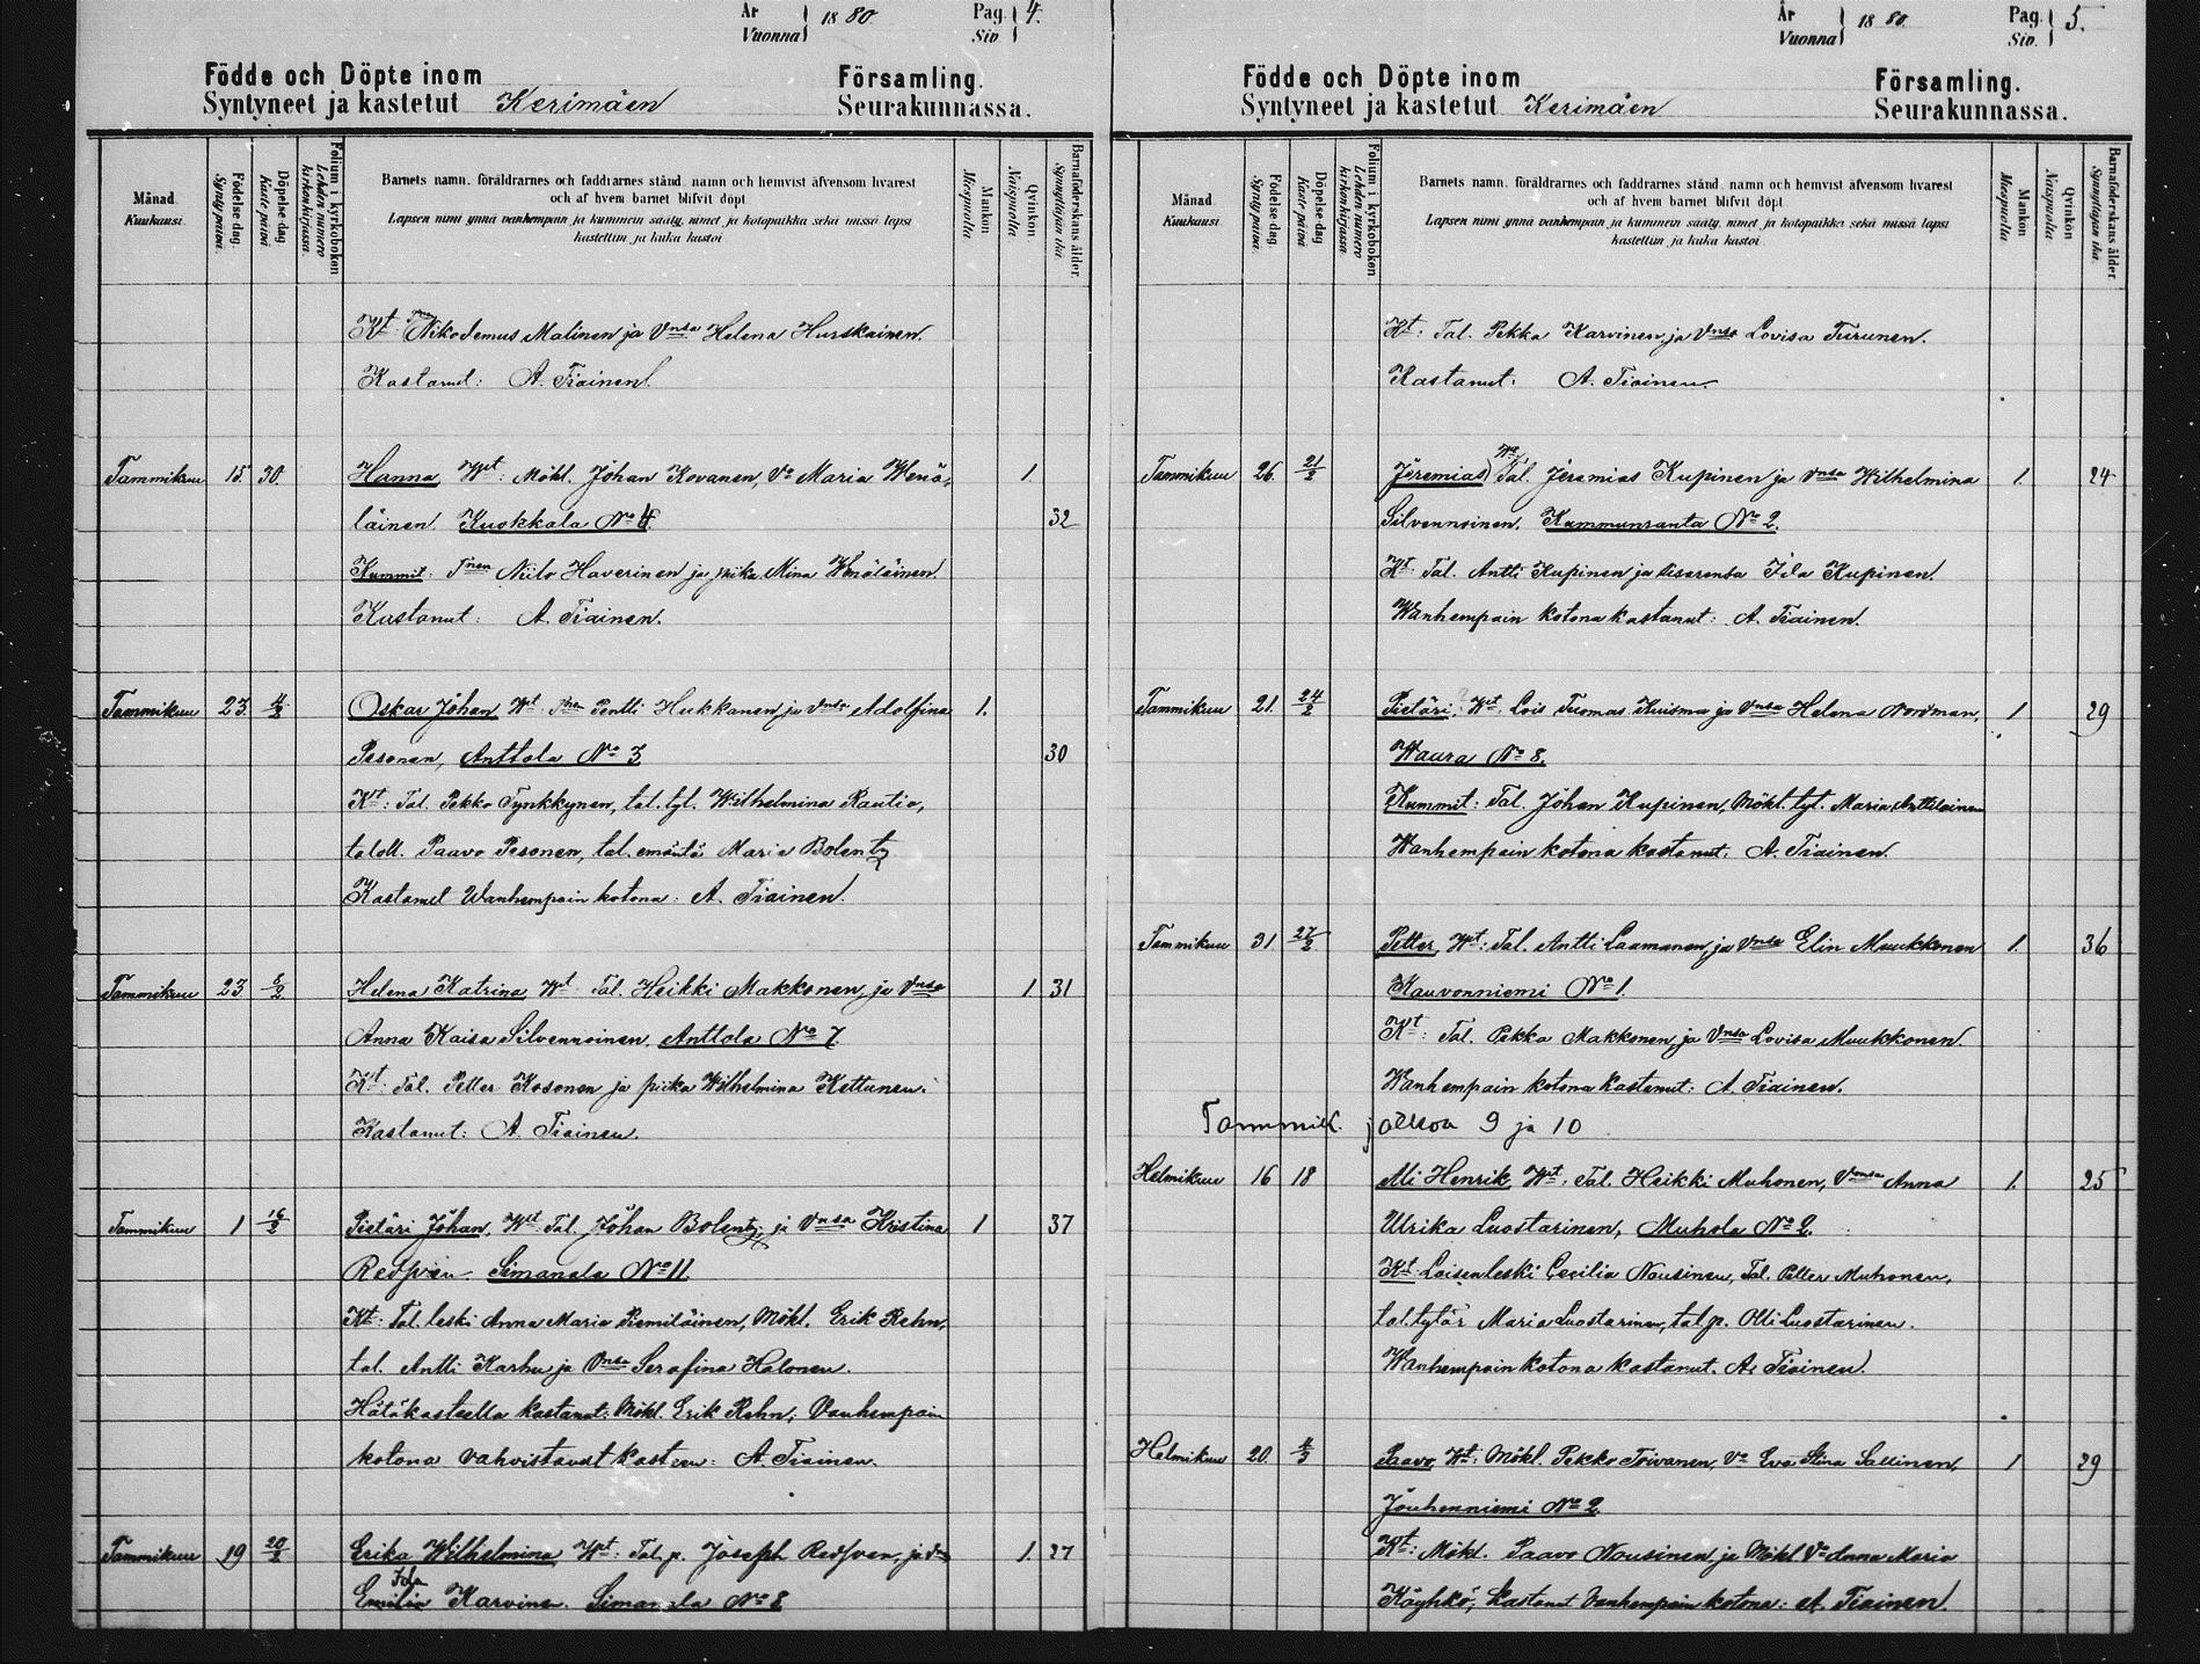 År Vuonna } 1880. Pag. Siv. } 4.
Födde och Döpte inom Församling.
Syntyneet ja kastetut Kerimäen Seurakunnassa.
Månad. Kuukausi.
Födelse-dag. Synty päivä.
Döpelse-dag Kaste päivä.
Folium i kyrkoboken Lehden numero kirkonkirjassa.
Barnets namn, föräldrarnes och faddrarnes stånd, namn och hemvist äfvensom hvarest
och af hvem barnet blifvit döpt
Lapsen nimi ynnä vanhempain ja kummein sääty, nimet ja kotopaikka sekä missä lapsi
kastettiin ja kuka kastoi
Mankön Miespuolia
Qvinkön Naispuolia
Barnaföderskans ålder. Synnyttäjän ikä.
Kt: Nikodemus Malinen ja Vnsa Helena Hurskainen.
Kastanut: A. Tiainen.
Tammikuu 15. 30. Hanna, Wt: Mökl. Johan Kovanen, Vo Maria Wenä- 1
läinen. Kuokkala No 4. 32
Kummit: Tnen Niilo Haverinen ja piika Mina Wenäläinen.
Kastanut: A. Tiainen.
Tammikuu 23. 4/2 Oskar Johan, Wt Pentti Hukkanen ja Vnsa Adolfina 1.
Pesonen, Anttola No 3 30
Kt: Tal. Pekko Tynkkynen, tal. tyt. Wilhelmina Rautio,
Paavo Pesonen, tal. emäntä Maria Bolentz
Kastanut Wanhempain kotona: A. Tiainen.
Tammikuu 23 8/2 Helena Katrina, Wt Tal. Heikki Makkonen, ja Vnsa 1 31
Anna Kaisa Silvennoinen, Anttola No 7.
Kt: Tal. Petter Kosonen ja piika Wilhelmina Kettunen.
Kastanut: A. Tiainen.
Tammikuu 1 16/2 Pietäri Johan, Wt Tal. Johan Bolentz, ja Vnsa Kristina 1 37
Redsven. Simanala No 11.
Kt: Tal. leski Anna Maria Piemiläinen, Mökl. Erik Rehn,
tal. Antti Karhu ja Vnsa Serafina Halonen.
Hätäkasteella kastanut: Mökl. Erik Rehn; Vanhempain
kotona vahvistanut kasteen: A. Tiainen.
Tammikuu 19 20/2 Erika Wilhelmina, Wt: Tal. p. Joseph Redsven, ja 1. 27
Ida
Emilia Karvinen. Simanala No 8
År Vuonna } 1880. Pag. Siv. } 5.
Födde och Döpte inom Församling.
Syntyneet ja kastetut Kerimäen Seurakunnassa.
Månad. Kuukausi.
Födelse-dag. Synty päivä.
Döpelse-dag Kaste-päivä.
Folium i kyrkoboken Lehden numero kirkonkirjassa
Barnets namn, föräldrarnes och faddrarnes stånd, namn och hemvist äfvensom hvarest
och af hvem barnet blifvit döpt
Lapsen nimi ynnä vanhempain ja kummein sääty, nimet ja kotopaikka sekä missä lapsi
kastettiin ja kuka kastoi
Mankön Miespuolia
Qvinkön Naispuolia
Barnaföderskans ålder Synnyttäjän ikä.
Kt: Tal. Pekka Karvinen, ja Vnsa Lovisa Turunen.
Kastanut: A. Tiainen.
Tammikuu 26. 21/2 Jeremias, Wt Tal. Jeremias Kupinen ja Vnsa Wilhelmina 1. 24
Silvennoinen. Kummunranta No 2.
Kt: Tal. Antti Kupinen ja Ida Kupinen.
Wanhempain kotona kastanut: A. Tiainen.
Tammikuu 21. 24/2 Pietäri, Wt Lois Tuomas Kuisma ja Vnsa Helena Nordman, 1 29
Waara No 8.
Kummit: Tal. Johan Kupinen, Mökl. tyt. Maria Anttilainen
Wanhempain kotona kastanut: A. Tiainen.
Tammikuu 31 27/2 Petter, Wt: Tal. Antti Laamanen, ja Vnsa Elin Muukkonen 1. 36
Kauvonniemi No 1.
Kt: Tal. Pekka Makkonen, ja Vnsa Lovisa Muukkonen.
Wanhempain kotona kastanut: A. Tiainen.
Tammik. jatkoa 9 ja 10
Helmikuu 16 18 Ali Henrik, Wt: Tal. Heikki Muhonen, Vnsa Anna 1. 25
Ulrika Luostarinen, Muhola No 2.
Kt: Loisenleski Cecilia Nousinen, Tal. Petter Muhonen,
tal. tytär Maria Luostarinen, tal. p. Olli Luostarinen.
Wanhempain kotona kastanut. A. Tiainen.
Helmikuu 20. 4/3 Paavo, Wt: Mökl. Pekko Toivanen, Vo Eva Stina Sallinen, 1 29
Jouhenniemi No 2.
Kt: Mökl. Paavo Nousinen ja Mökl Vo Anna Maria
Käyhkö; kastanut Vanhempain kotona: A. Tiainen.